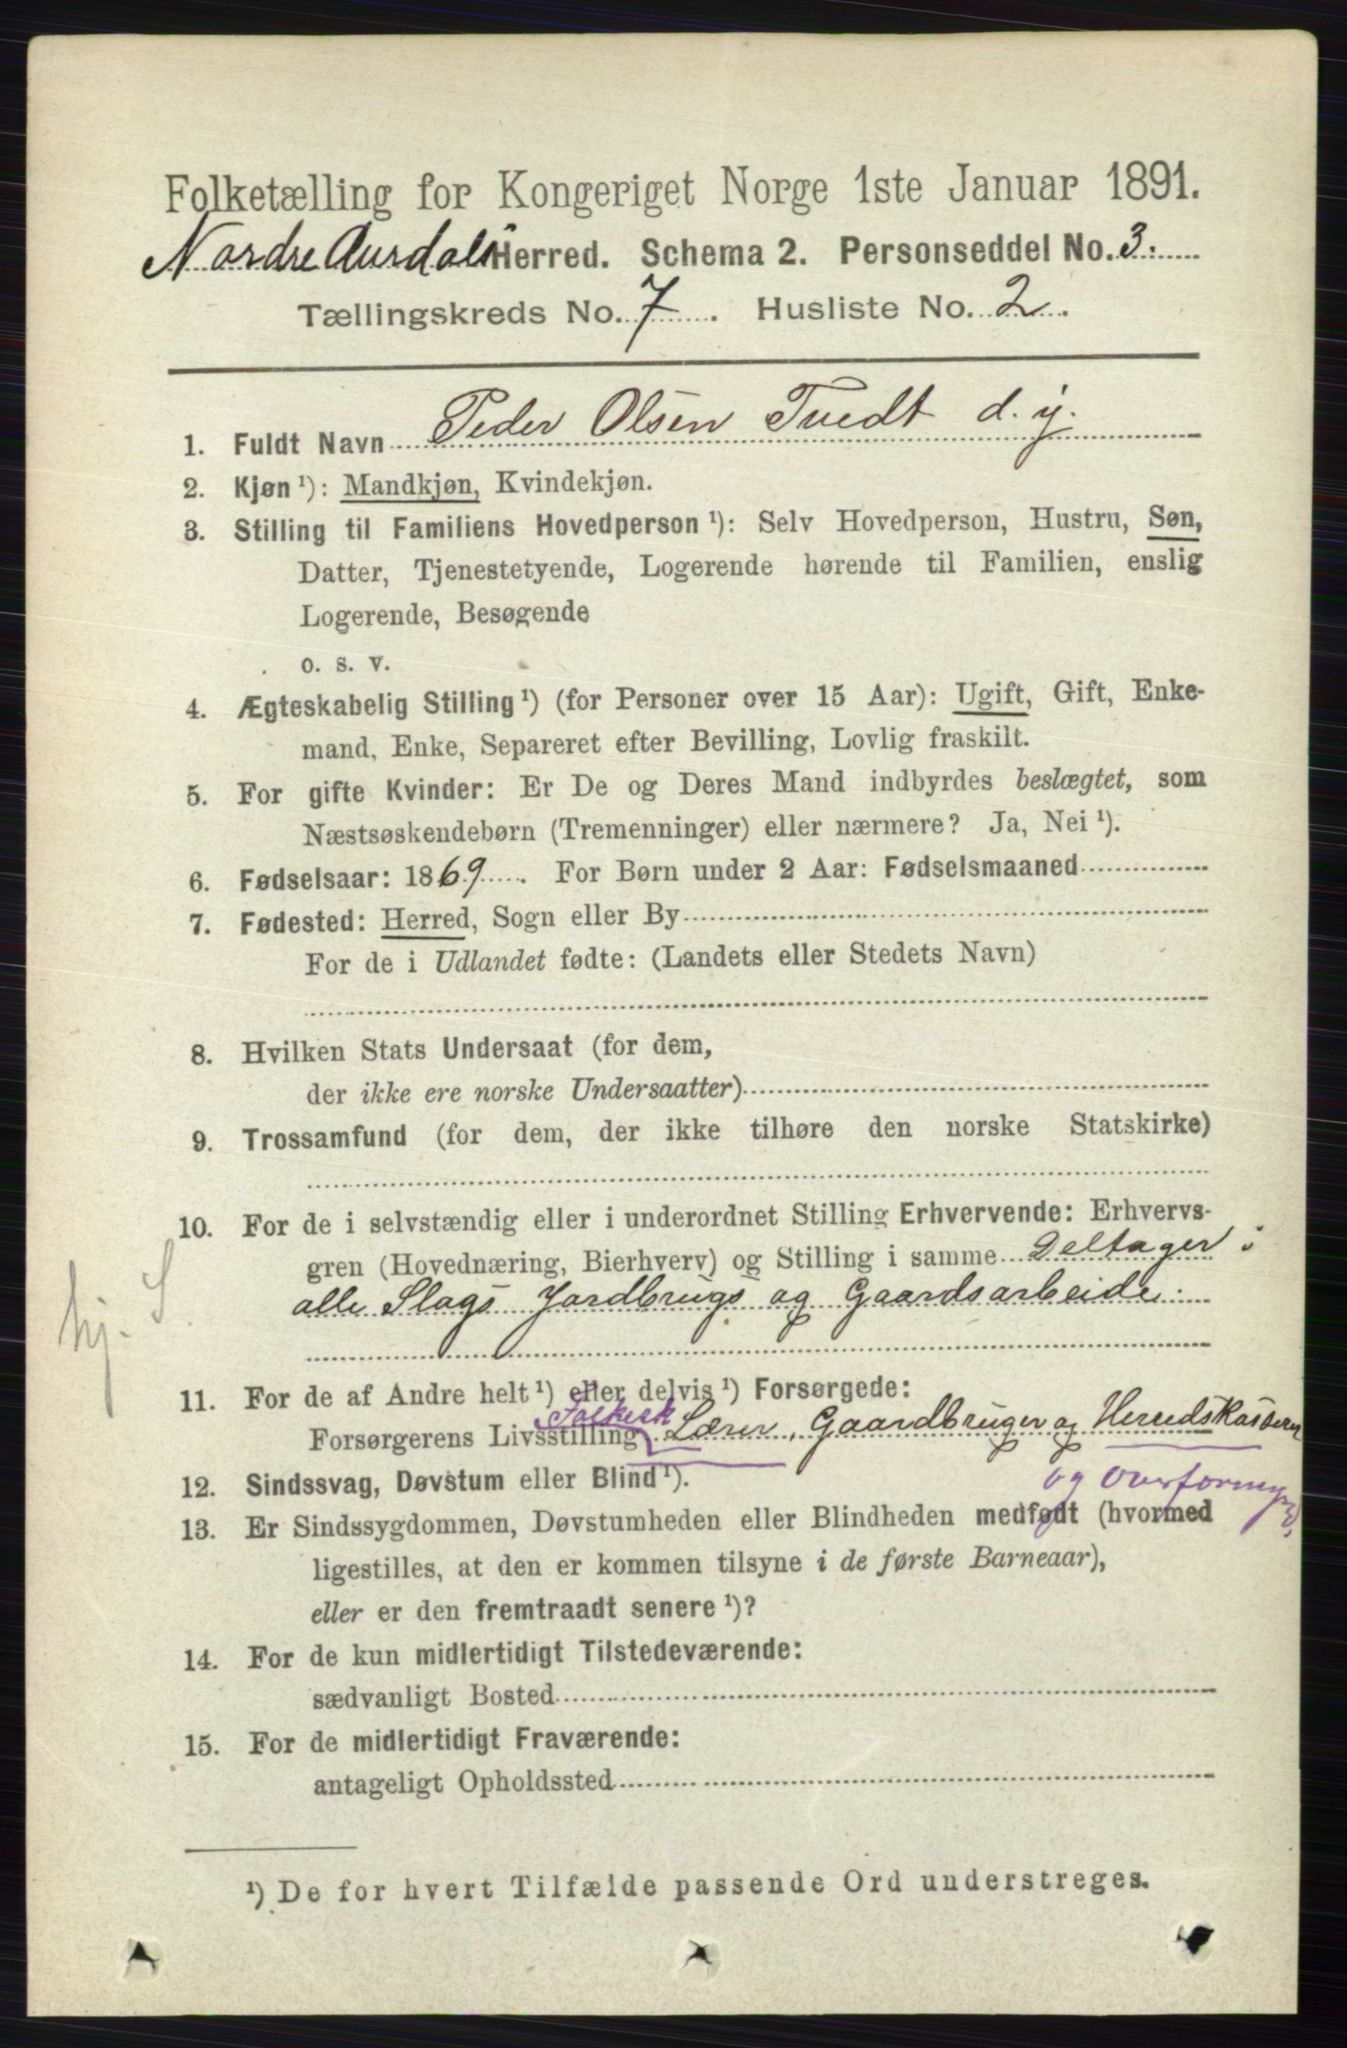 Folketælling for Kongeriget Norge 1ste Januar 1891.
Nordre Aurdals Herred. Schema 2. Personseddel No. 3.
Tællingskreds No. 7. Husliste No. 2.
1. Fuldt Navn Peder Olsen Tvedt d. y.
2. Kjøn ¹): Mandkjøn, Kvindekjøn.
3. Stilling til Familiens Hovedperson ¹): Selv Hovedperson, Hustru, Søn,
Datter, Tjenestetyende, Logerende hørende til Familien, enslig
Logerende, Besøgende
o. s. v.
4. Ægteskabelig Stilling ¹) (for Personer over 15 Aar): Ugift, Gift, Enke-
mand, Enke, Separeret efter Bevilling, Lovlig fraskilt.
5. For gifte Kvinder: Er De og Deres Mand indbyrdes beslægtet, som
Næstsøskendebørn (Tremenninger) eller nærmere? Ja, Nei ¹).
6. Fødselsaar: 1869. For Børn under 2 Aar: Fødselsmaaned
7. Fødested: Herred, Sogn eller By
For de i Udlandet fødte: (Landets eller Stedets Navn)
8. Hvilken Stats Undersaat (for dem,
der ikke ere norske Undersaatter)
9. Trossamfund (for dem, der ikke tilhøre den norske Statskirke)
10. For de i selvstændig eller i underordnet Stilling Erhvervende: Erhvervs-
gren (Hovednæring, Bierhverv) og Stilling i samme Deltager i
alle Slags Jordbrugs og Gaardsarbeide.
hj. S
11. For de af Andre helt ¹) eller delvis ¹) Forsørgede:
Folkesk
Forsørgerens Livsstilling Lærer, Gaardbruger og Herredskasserer
og
12. Sindssvag, Døvstum eller Blind ¹).
13. Er Sindssygdommen, Døvstumheden eller Blindheden medfødt (hvormed
ligestilles, at den er kommen tilsyne i de første Barneaar),
eller er den fremtraadt senere ¹)?
14. For de kun midlertidigt Tilstedeværende:
sædvanligt Bosted
15. For de midlertidigt Fraværende:
antageligt Opholdssted
¹) De for hvert Tilfælde passende Ord understreges.